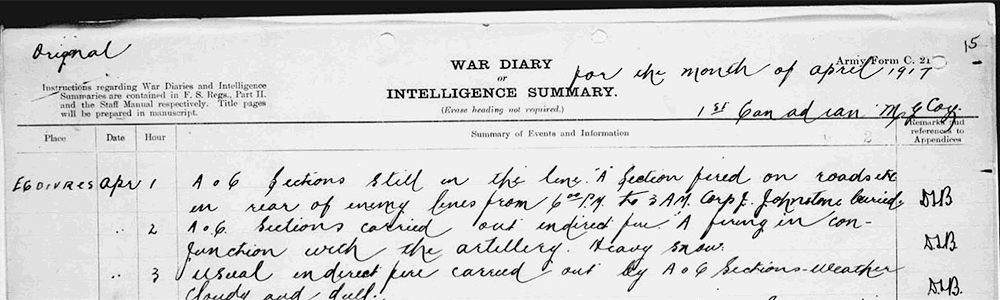 Original
15
WAR DIARY
or
INTELLIGENCE SUMMARY.
(Erase heading not required.)
for the month of april 1917
Army Form C. 21
1st Canadian M G Coy.
Instructions regarding War Diaries and Intelligence
Summaries are contained in F. S. Regs., Part II.
and the Staff Manual respectively. Title pages
will be prepared in manuscript.
Place Date Hour Summary of Events and Information Remarks and
references to
Appendices
2
apr 1 A & C Sections still in the line. A Section fired on roads etc
in rear of enemy lines from 6 00 P.M. to 3 A.M. Corp J. Johnstone buried
" 2 A & C. Sections carried out indirect fire. A firing in con-
junction with the artillery. Heavy snow.
" 3 Usual indirect fire carried out by A & C Sections-weather
cloudy and dull.